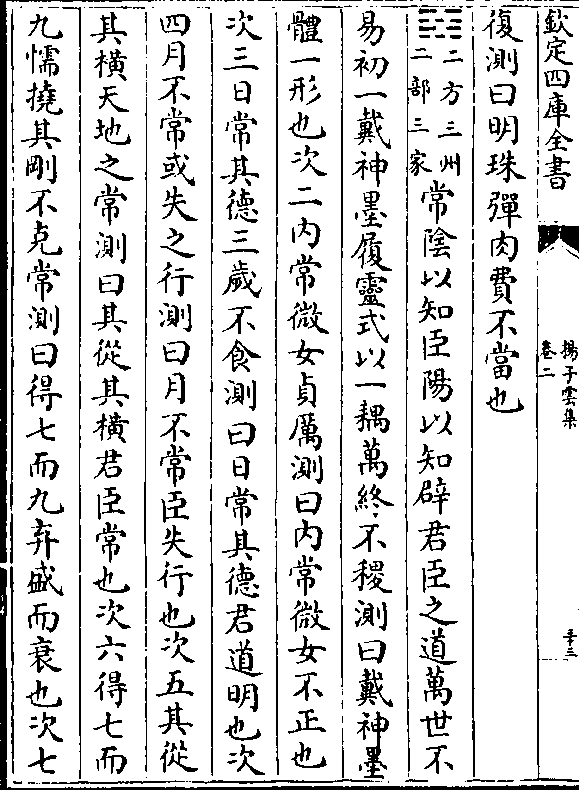 欽定四庫全書
揚子雲集
卷二
三十三
復測曰明珠彈肉費不當也
二方三州
二部三家
常陰以知臣陽以知辟君臣之道萬世不
易初一戴神墨履靈式以一耦萬終不稷測曰戴神墨
體一形也次二内常微女貞厲測曰内常微女不正也
次三日常其德三歲不食測曰日常其德君道明也次
四月不常或失之行測曰月不常臣失行也次五其從
其橫天地之常測曰其從其橫君臣常也次六得七而
九懦撓其剛不克常測曰得七而九弃盛而衰也次七